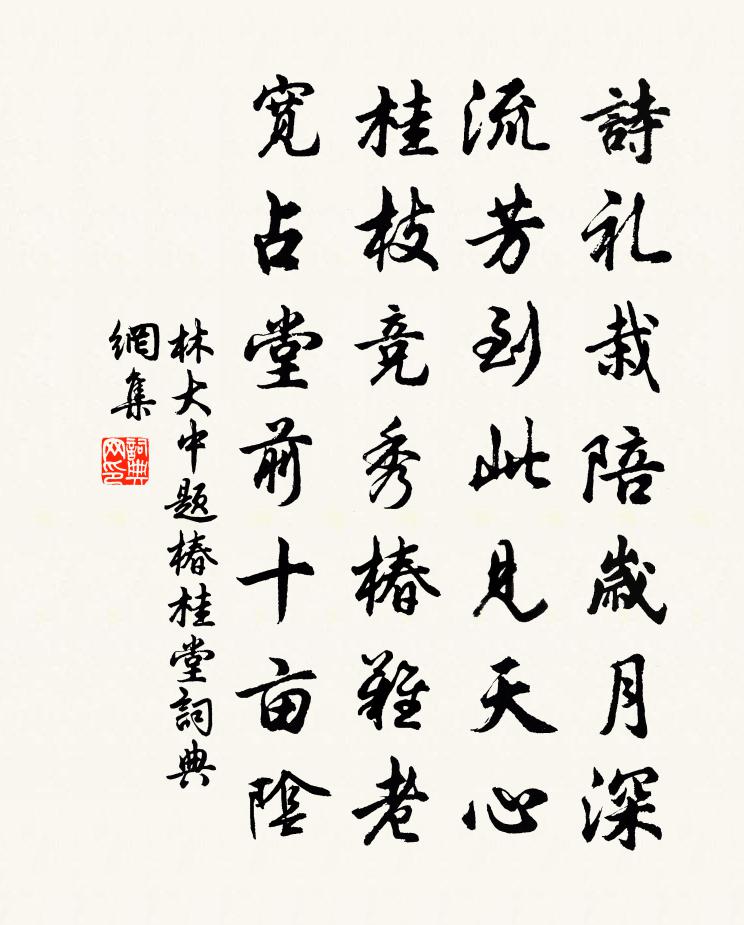 詩礼栽陪歲月深
流芳到此見天心
桂枝竞秀椿難老
寛占堂前十亩陰
林大中題椿桂堂詞典
網集
詞典
网印